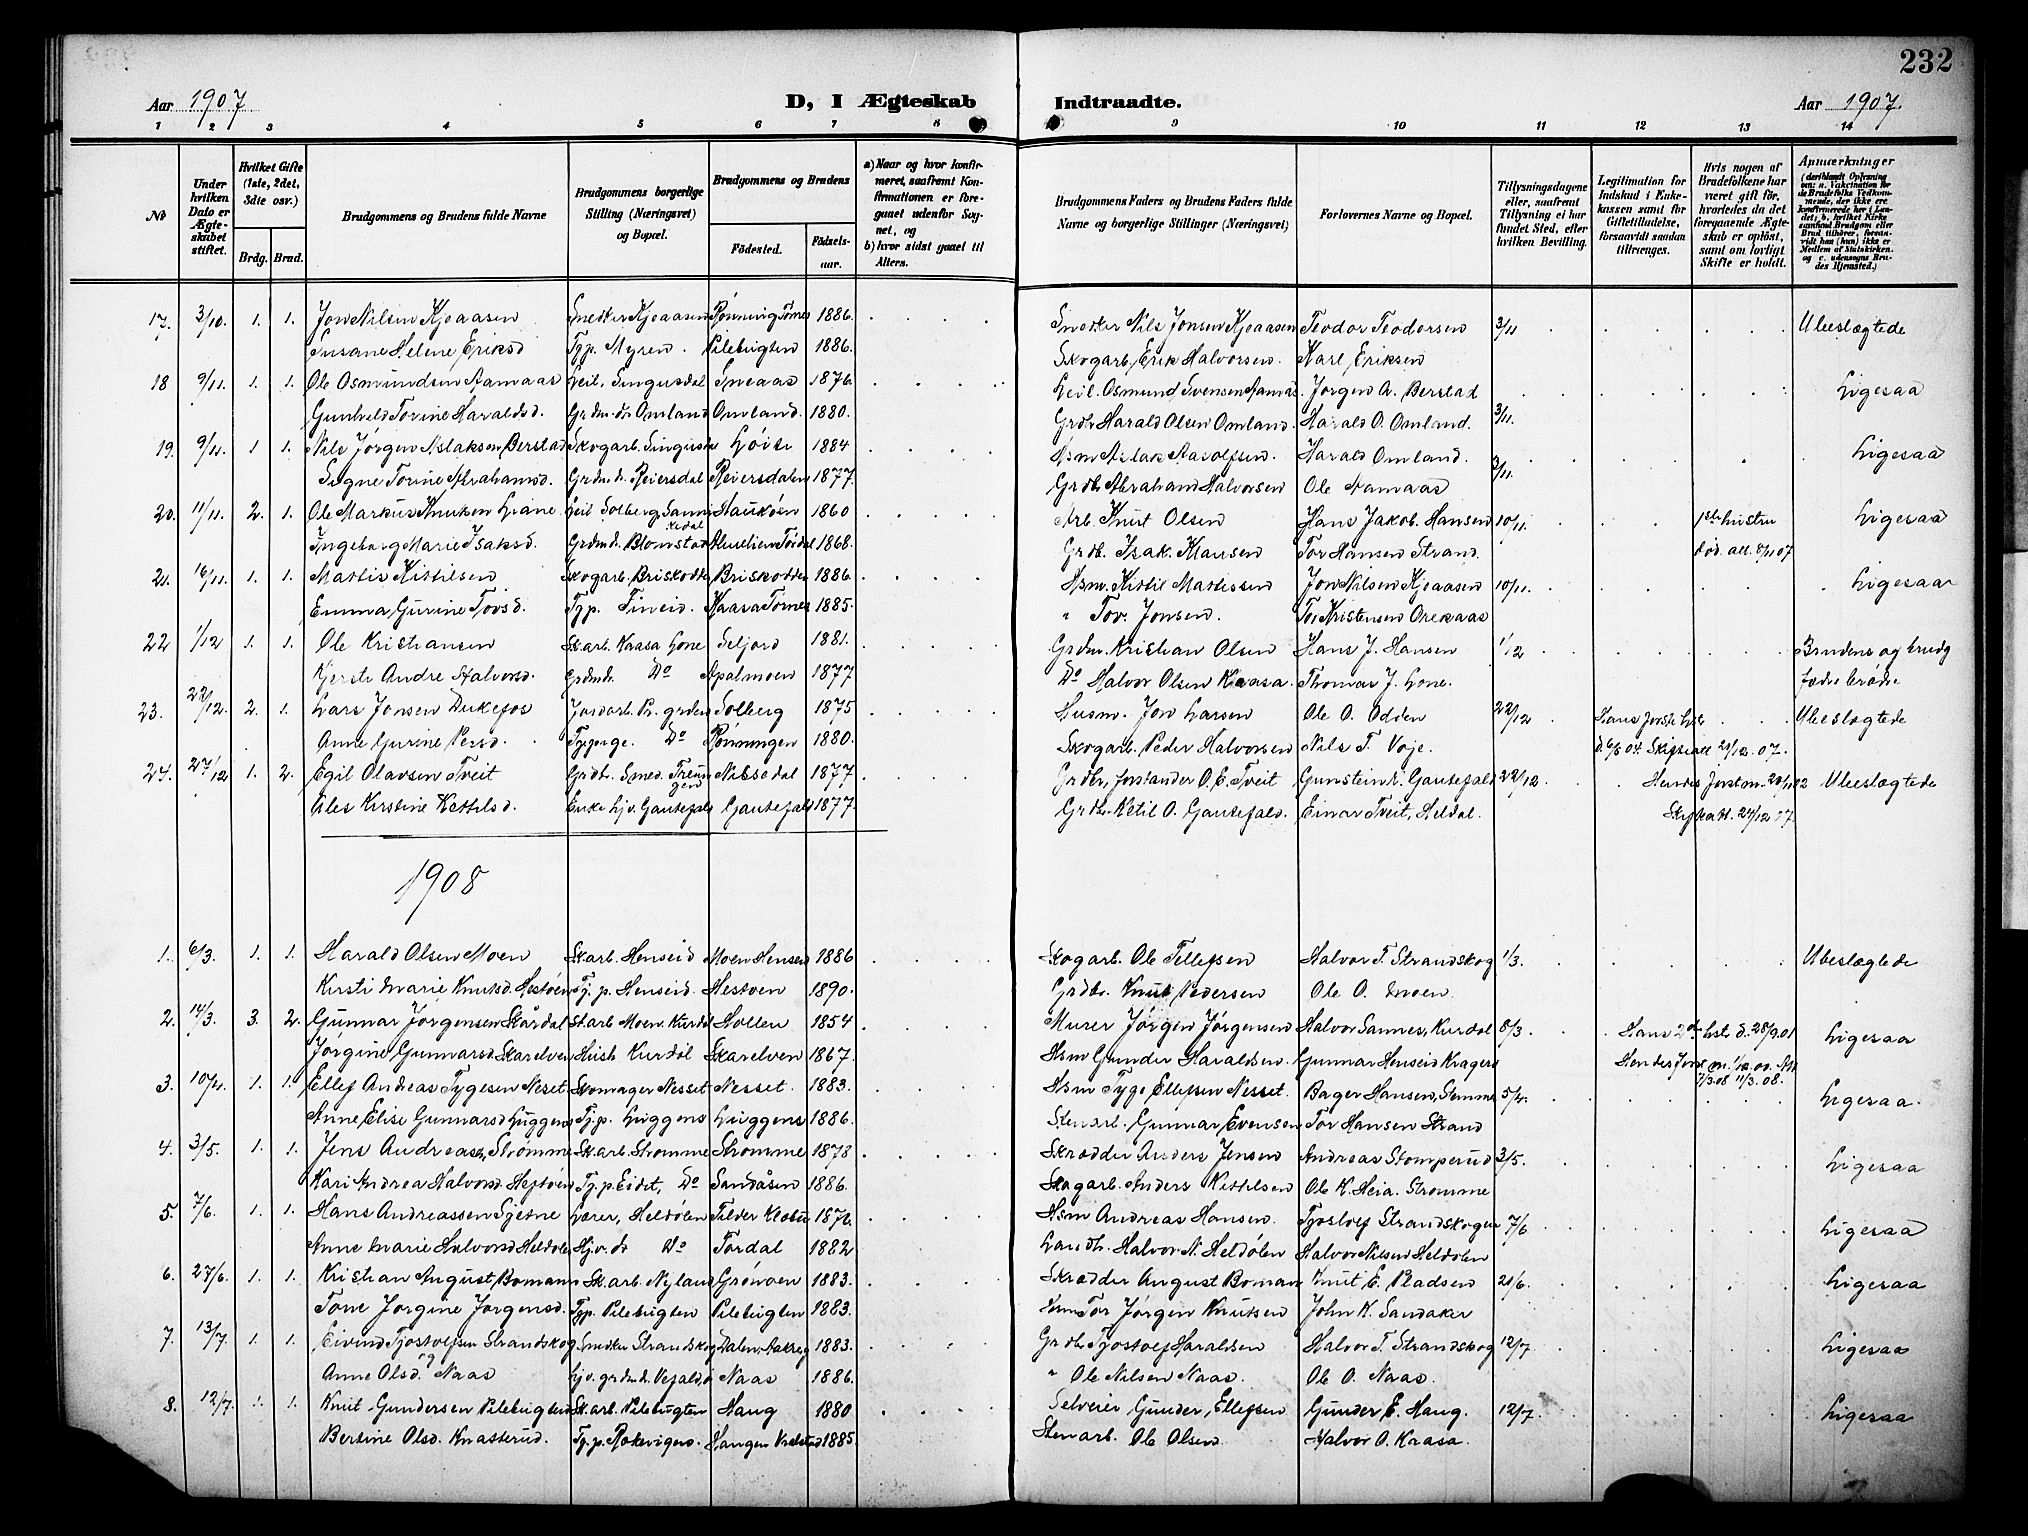 232
Aar 1907 D, I Ægteskab Indtraadte. Aar 1907.
1 2 3 4 5 6 7 8 9 10 11 12 13 14
No
Under hvilken Dato er Ægteskabet stiftet.
Hvilket Gifte (1ste, 2det, 3die osv.)
Brdg. Brud.
Brudgommens og Brudens fulde Navne
Brudgommens borgerlige Stilling (Næringsvei) og Bopæl.
Brudgommens og Brudens
Fødested. Fødselsaar.
a) Naar og hvor konfirmeret, saafremt Konfirmationen er foregaaet udenfor Sognet, og
b) hvor sidst gaaet til Alters.
Brudgommens Faders og Brudens Faders fulde Navne og borgerlige Stillinger (Næringsvei)
Forlovernes Navne og Bopæl.
Tillysningsdagene eller, saafremt Tillysning ei har fundet Sted, efter hvilken Bevilling.
Legitimation for Indskud i Enkekassen samt for Giftetilladelse, forsaavidt saadan tiltrænges.
Hvis nogen af Brudefolkene har været gift før, hvorledes da det foregaaende Ægteskab er opløst, samt om lovligt Skifte er holdt.
Apmærkninger (deriblandt Oplysning om: a. Vaccination for de Brudefolks Vedkommende, der ikke ere konfirmerede her i Landet; b. hvilket Kirkesamfund Brudgom eller Brud tilhører, forsaavidt han (hun) ikke er Medlem af Statskirken. og c. udensogns Brudes Hjemsted.)
17. 3/10. 1. 1. Jon Nilsen Kjeaasen Snedker Kjeaasen Rønnevig Tørnes 1886. Snedker Nils Jonsen Kjeaasen Teodor Teodorsen 3/11 Ubeslægtede
Susane Helene Eriksd Tjp. Myren. Pilebugten 1886. Skogarb. Erik Halvorsen. Karl Eriksen
18 9/11. 1. 1. Ole Osmundsen Aamaas Leil. Singusdal Sneaas 1876. Leil. Osmund Svensen Aamaas. Jørgen A. Berstad Ligesaa
Gunhild Torine Haraldsd. Grdm. dr Omland Omland. 1880. Grdb Harald Olsen Omland. Harald O. Omland. 3/11.
19. 9/11. 1 1. Nils Jørgen Aslaksen Berstad Skogarb. Singusda 1884 Hsm Aslak Aavolfsen. Harald Omland. Ligesaa
Signe Torine Abrahamsd. Grdm.dr. Reiersdal Reiersdalen 1877. Grdb. Abraham Halvorsen Ole Aamaas 3/11.
20. 11/11. 2. 1. Ole Markus Knutsen Liane Leil Solberg Sannikedal Staukøen 1860 Arb. Knut Olsen Hans Jakob Hansen 10/11 1ste hustru Ligesaa
Ingeborg Marie Isaksd. Grdmdr. Blomstad 1868. Grdb. Isak Klausen Tor Hansen Strand. død. att. 8/11 07
21. 16/11. 1. 1. Martis Kittilsen Skogarb. Briskodde Briskodden 1886. Hsm. Kittil Martissen Jon Nilsen Kjeaasen 10/11. Ligesaa
Emma Gurine Tovsd. Tjp. Fineid. Kaasa Tørnes 1885. " Tov. Jonsen. Tor Kristensen
22 1/12 1. 1. Ole Kristiansen Sk.arb. Kaasa Lone Seljord 1881. Grdm. Kristian Olsen Hans J. Hansen 1/12 Brudens og brudg
Kjersti Andre Halvorsd. Grdmdr. Do Apalmoen 1877 Do Halvor Olsen Kaasa. Thomas J. Lone. fædre brødre
23. 22/12. 2. 1. Lars Jonsen Dukefos Jordarb. Pr. grden Solberg 1875 Husm. Jon Larsen Ole O. Odden 22/12 Hans forste hstr Ubeslægtede
Anne Gurine Persd. Tjgerge. Do Rønningen 1880. Skogarb. Peder Halvorsen Nils T. Voje. d. 6/8 04. Skifteatt 21/12. 07.
24. 27/12 1. 2. Egil Olavsen Tveit Grdbr. Smed. Treungen Nissedal 1877. Grdbr, forstander O. E. Tveit Gunstein K. Gautefald 22/12. Hendes første m. 20/11 02 Ubeslægtede
Ales Kirstine Kettilsd. Enke Hjv. Gautefald Gautefald 1877. Grdbr. Ketil O. Gautefald. Einar Tveit, Heldal. Skifteatt. 24/12 07.
1908
1. 6/3. 1. 1. Harald Olsen Moen Skarb. Henseid Moen Hensei 1886 Skogarb. Ole Tellefsen Halvor T. Strandskog 1/3. Ubeslægtede
Kirsti Marie Knutsd. Hestøen Tj.p. Henseid. Hestøen 1890. Grdbr. Knut Pedersen Ole O. Moen.
2. 14/3. 3. 2. Gunnar Jørgensen Skårdal St.arb Moen Kurdøl Hollen 1854 Murer Jørgen Jørgensen Halvor Sannes, Kurdøl 8/3. Hans 2den hst. d. 28/9.01 Ligesaa
Jørgine Gunnarsd Skarelven Hush Kurdøl Skarelven 1867. Hsm Gunder Haraldsen. Gunnar Henseid Kragerø Hendes første m. 1/12.00. Att 7/3.08 11/3.08.
3. 10/4. 1. 1. Ellef Andreas Tygesen Neset Skomager Nesset Nesset. 1883. Hsm Tyge Ellefsen Nesset. Bager Hansen, Stemme 5/4. Ligesaa.
Anne Elise Gunnarsd Luggens Tj.p. Luggens Luggens 1886. Stenarb. Gunnar Evensen Tor Hansen Strand
4. 3/5. 1. 1. Jens Andreasen Strømme Sk.arb. Strømme Strømme 1878 Skrædder Anders Jensen Andreas Stomperud 3/5. Ligesaa
Kari Andrea Halvorsd. Heftøen Tj.p. Eidet, Do Sandåsen 1886. Skogarb. Anders Kittilsen Ole K. Heia. Strømme
5. 7/6. 1. 1. Hans Andreassen Sjetne Lærer, Heldølen Tilder Klæbu 1876. Hsm Andreas Hansen. Tjostolf Strandskogen 7/6 Ligesaa
Anne Marie Halvorsd Heldølen Hj.v. dr Do Tørdal 1882 Landh. Halvor N. Heldølen Halvor Nilsen Heldølen
6. 27/6. 1. 1. Kristian August Bomann Sk.arb. Nyland Grønoen 1883. Skrædder August Boman Knut E. Pladsen 21/6. Ligesaa
Tone Jørgine Jørgensd. Tjp. Pilebugten Pilebugten 1883. Hsm Tor Jørgen Knutsen John K. Sandaker
7. 13/7. 1. 1. Eivind Tjostolfsen Strandskog Snedker Strandskog Dalen, Aakre 1883. Grdbr Tjostolf Haraldsen Halvor T. Strandskog 12/7 Ligesaa
Anne Olsd. Naas Hjv. grdmd. Vefaldø Naas 1886. " Ole Nilsen Naas. Ole O. Naas.
8. 12/7. 1. 1. Knut Gundersen Pilebugten Sk.arb. Pilebugten Haug 1880 Selveier Gunder Ellefsen Gunder E. Haug. 12/7. Ligesaa
Bertine Olsd. Knatterud. Tj.p. Rakevigen. Haugen 1885. Stenarb. Ole Olsen Halvor O. Kaasa.